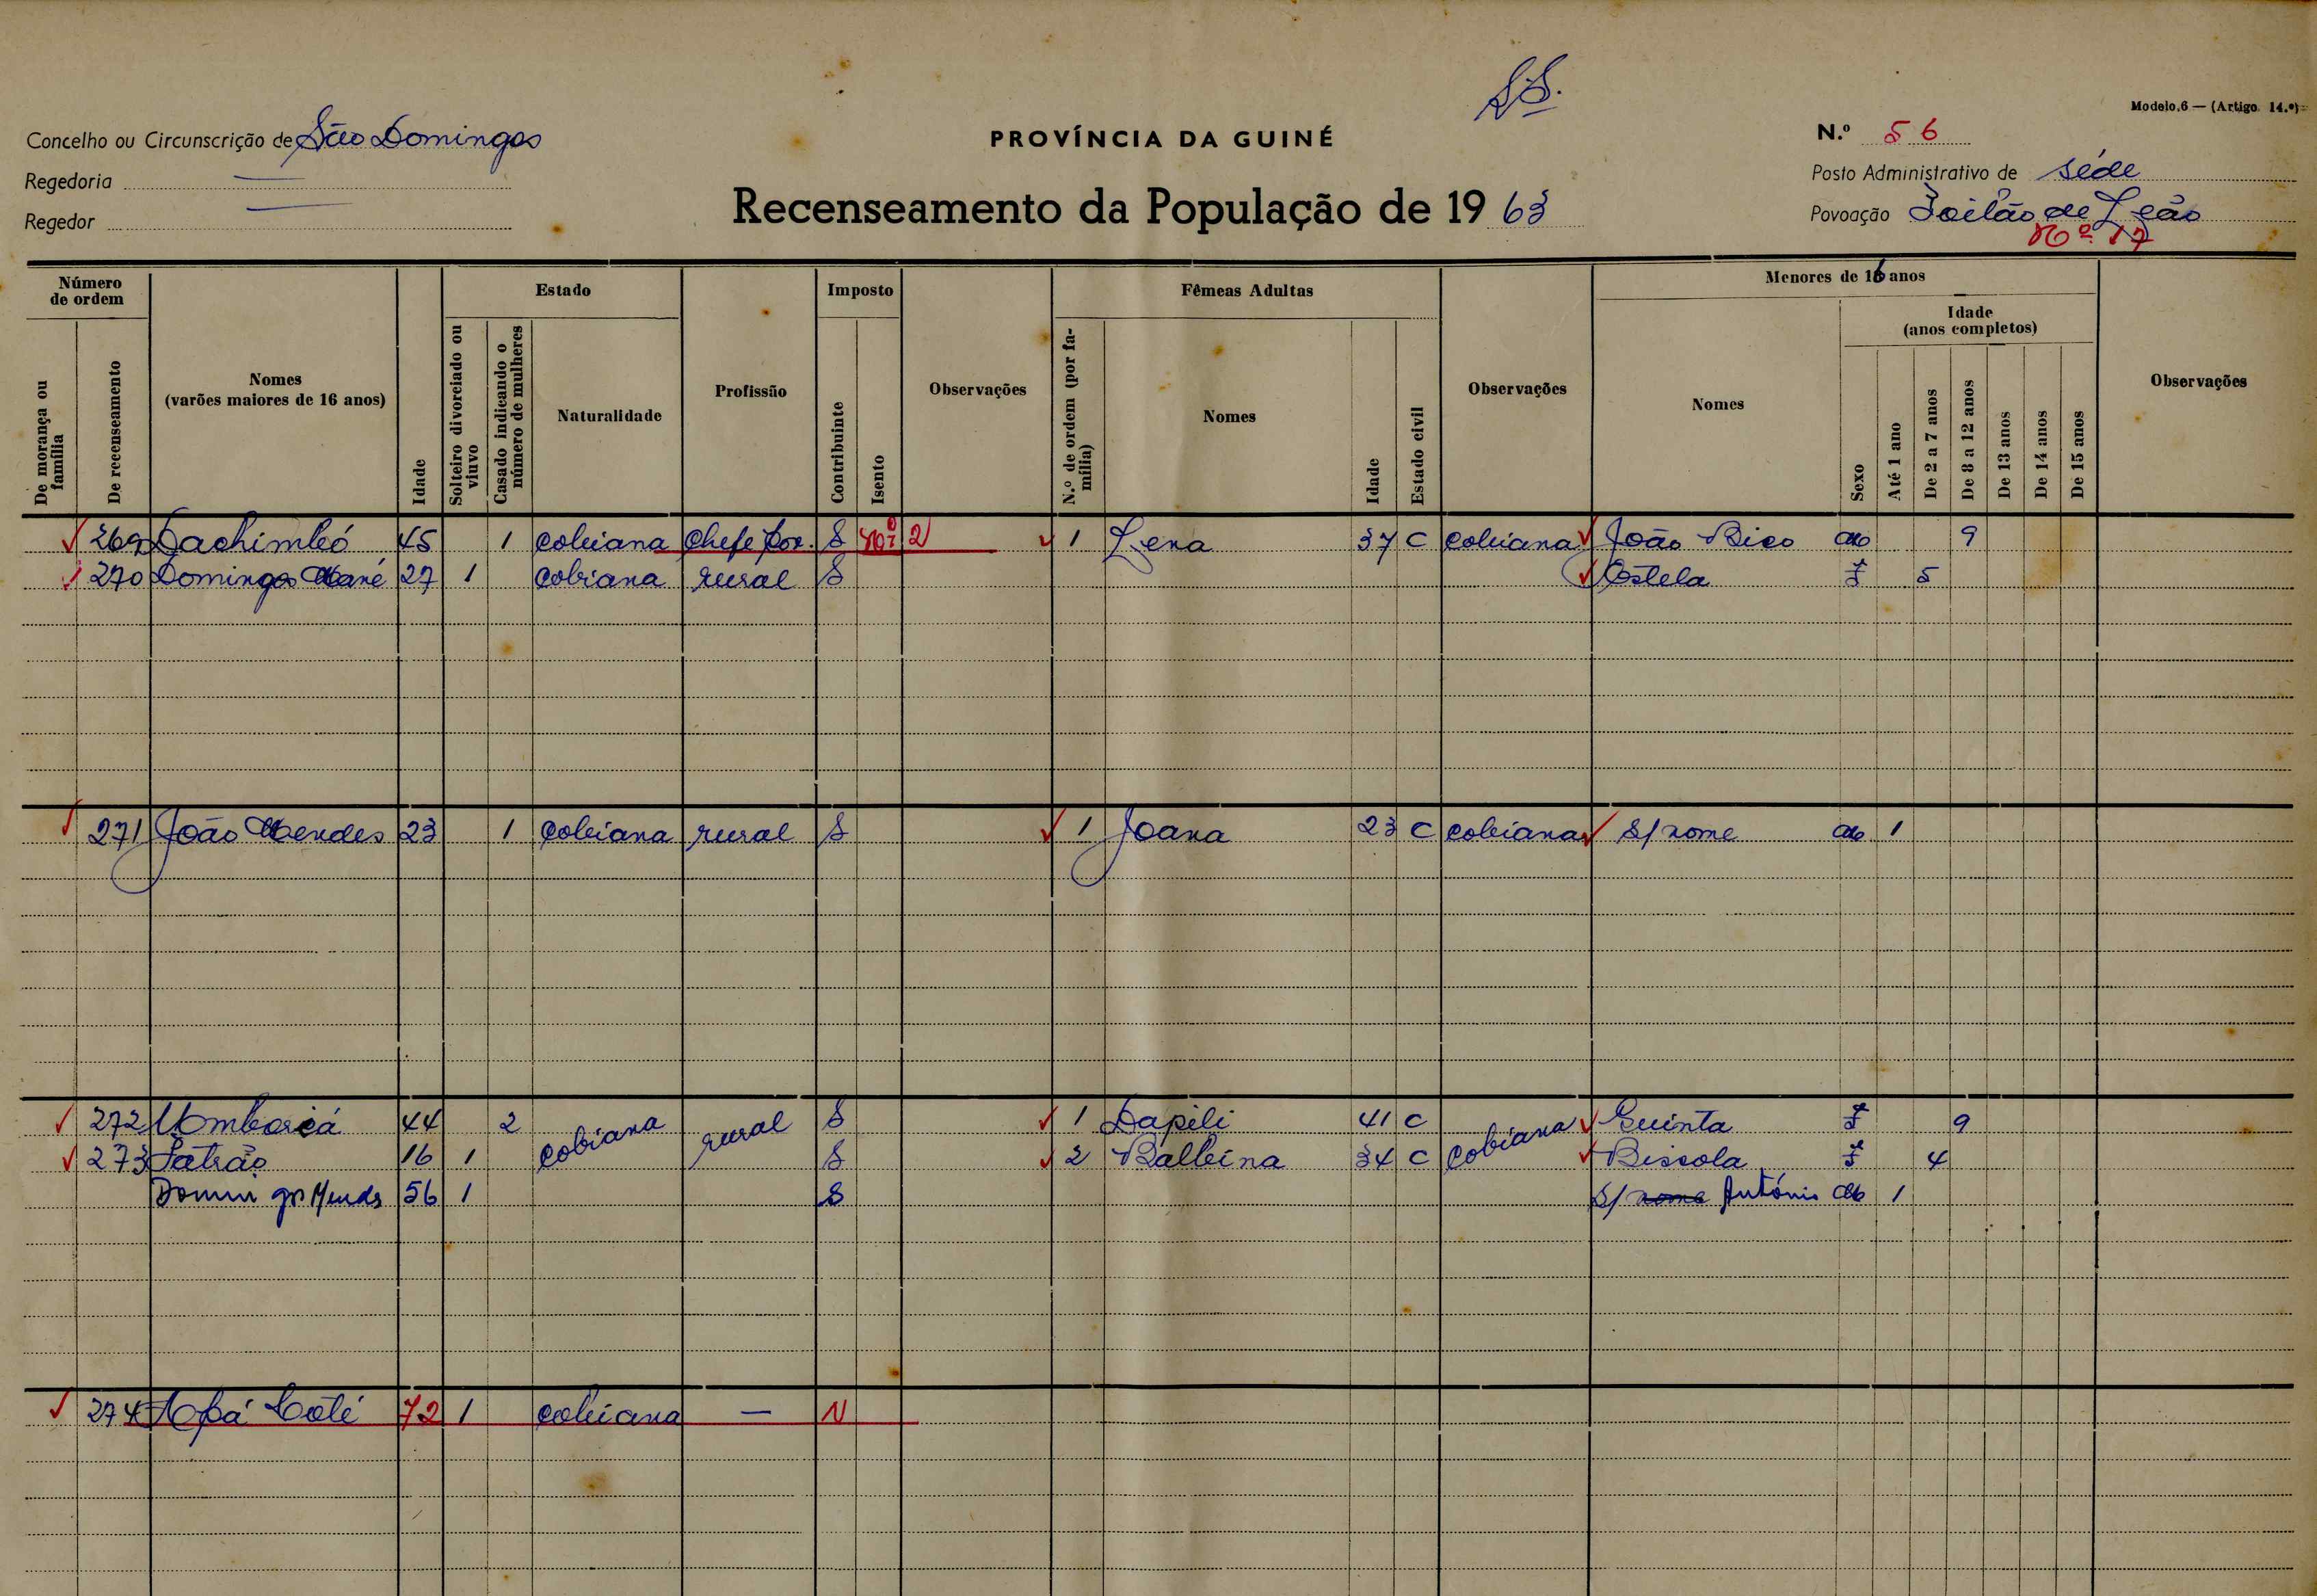 Modelo.6 — (Artigo 14.º)
Concelho ou Circunscrição de São Domingos
PROVÍNCIA DA GUINÉ
N.º 56
Regedoria —
Posto Administrativo de Séde
Regedor —
Recenseamento da População de 1963
Povoação
Nº 17
Número de ordem
De morança ou família
De recenseamento
Nomes (varões maiores de 16 anos)
Idade
Estado
Solteiro divorciado ou viuvo
Casado indicando o número de mulheres
Naturalidade
Profissão
Imposto
Contribuinte
Isento
Observações
Fêmeas Adultas
N.º de ordem (por família)
Nomes
Idade
Estado civil
Observações
Menores de 16 anos
Nomes
Sexo
Idade (anos completos)
Até 1 ano
De 2 a 7 anos
De 8 a 12 anos
De 13 anos
De 14 anos
De 15 anos
Observações
269 Dachimbó 45 1 cobiana Chefe Pov. S Nº 2 1 Lena 37 C cobiana João Bico M 9
270 Domingos Mané 27 1 cobiana rural S Estela F 5
271 João Mendes 23 1 cobiana rural S 1 Joana 23 C cobiana S/ nome M 1
272 44 2 cobiana rural S 1 Dapili 41 C cobiana Guinta F 9
273 16 1 S 2 Balbina 34 C Bissola F 4
Domingos Mendes 56 1 S S/ nome António M 1
274 72 1 cobiana — N